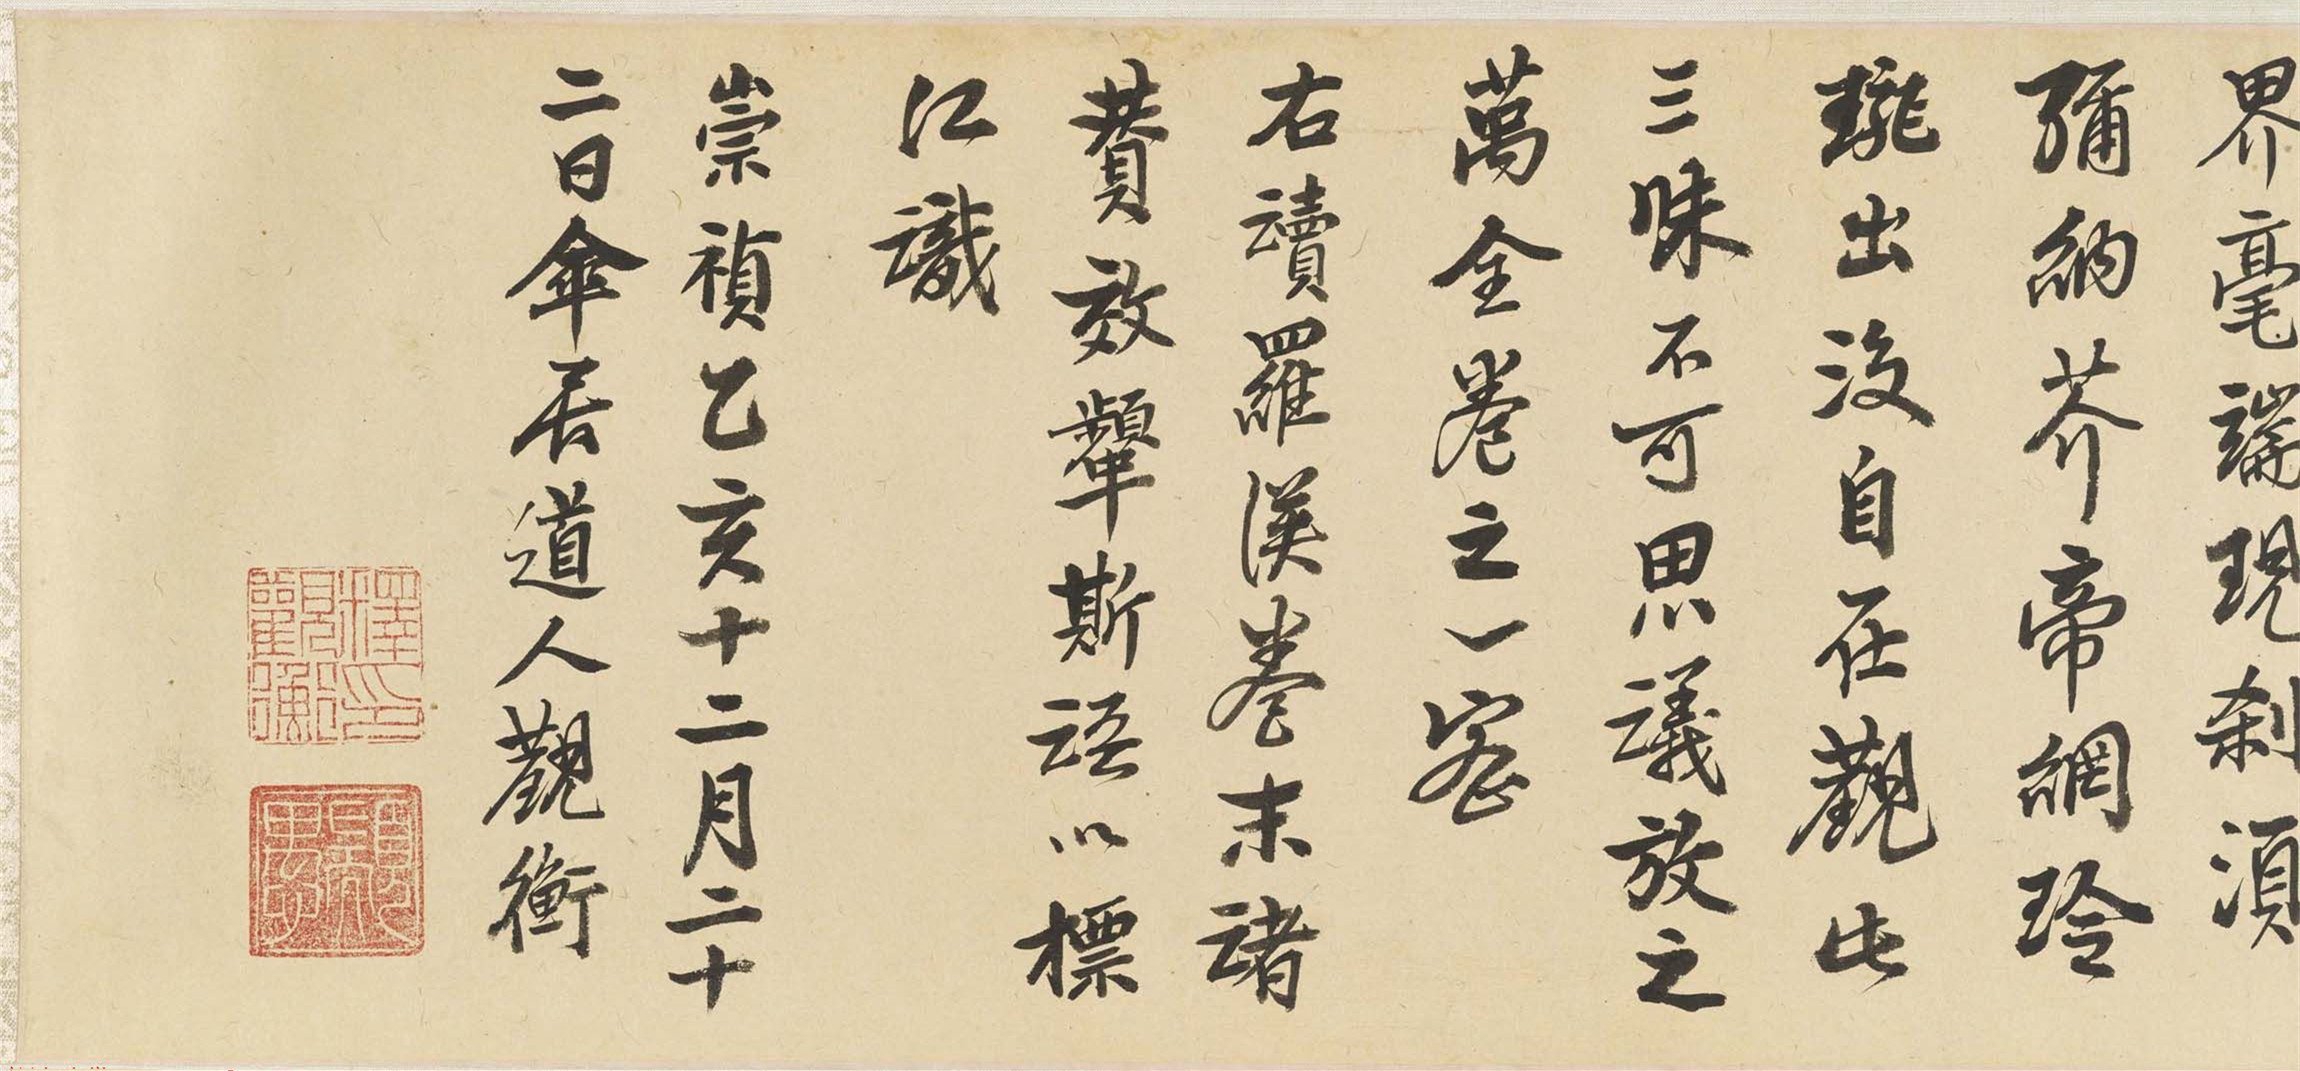 界毫端現剎須
彌納芥帝網玲
瓏出没自在觀此
三昧不可思議放之
萬全卷之一密
右讀羅漢卷末諸
贊效顰斯語以標
江識
崇禎乙亥十二月二十
二日傘居道人觀衡
顓愚